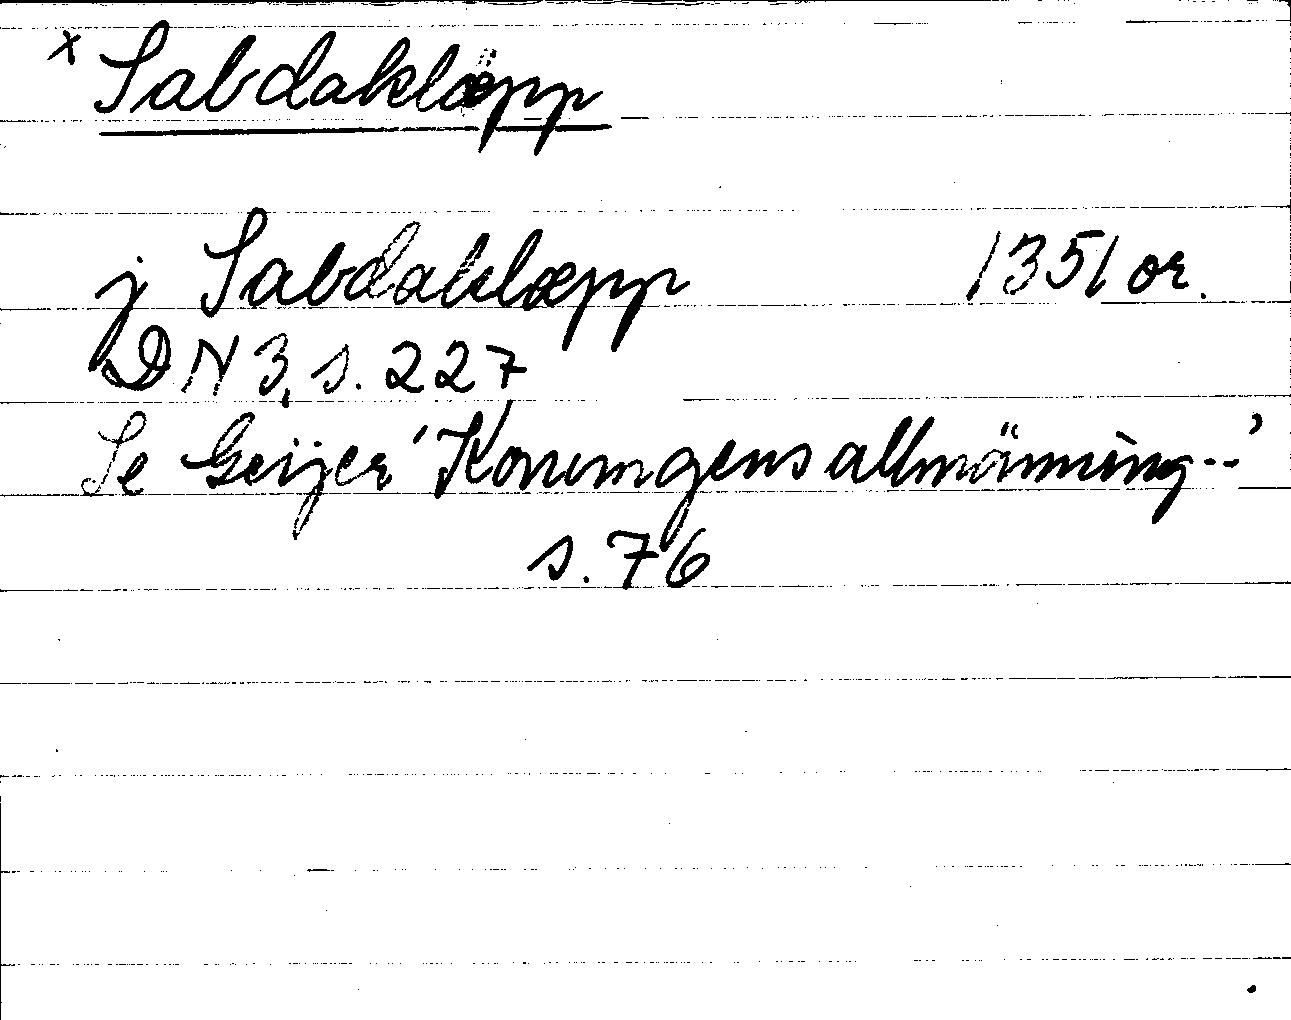 x Sabdaklæpp
j Sabdaklæpp 1351 or.
DN 3, s. 227
Se Geijer 'Konungens allmänning..'
s. 76